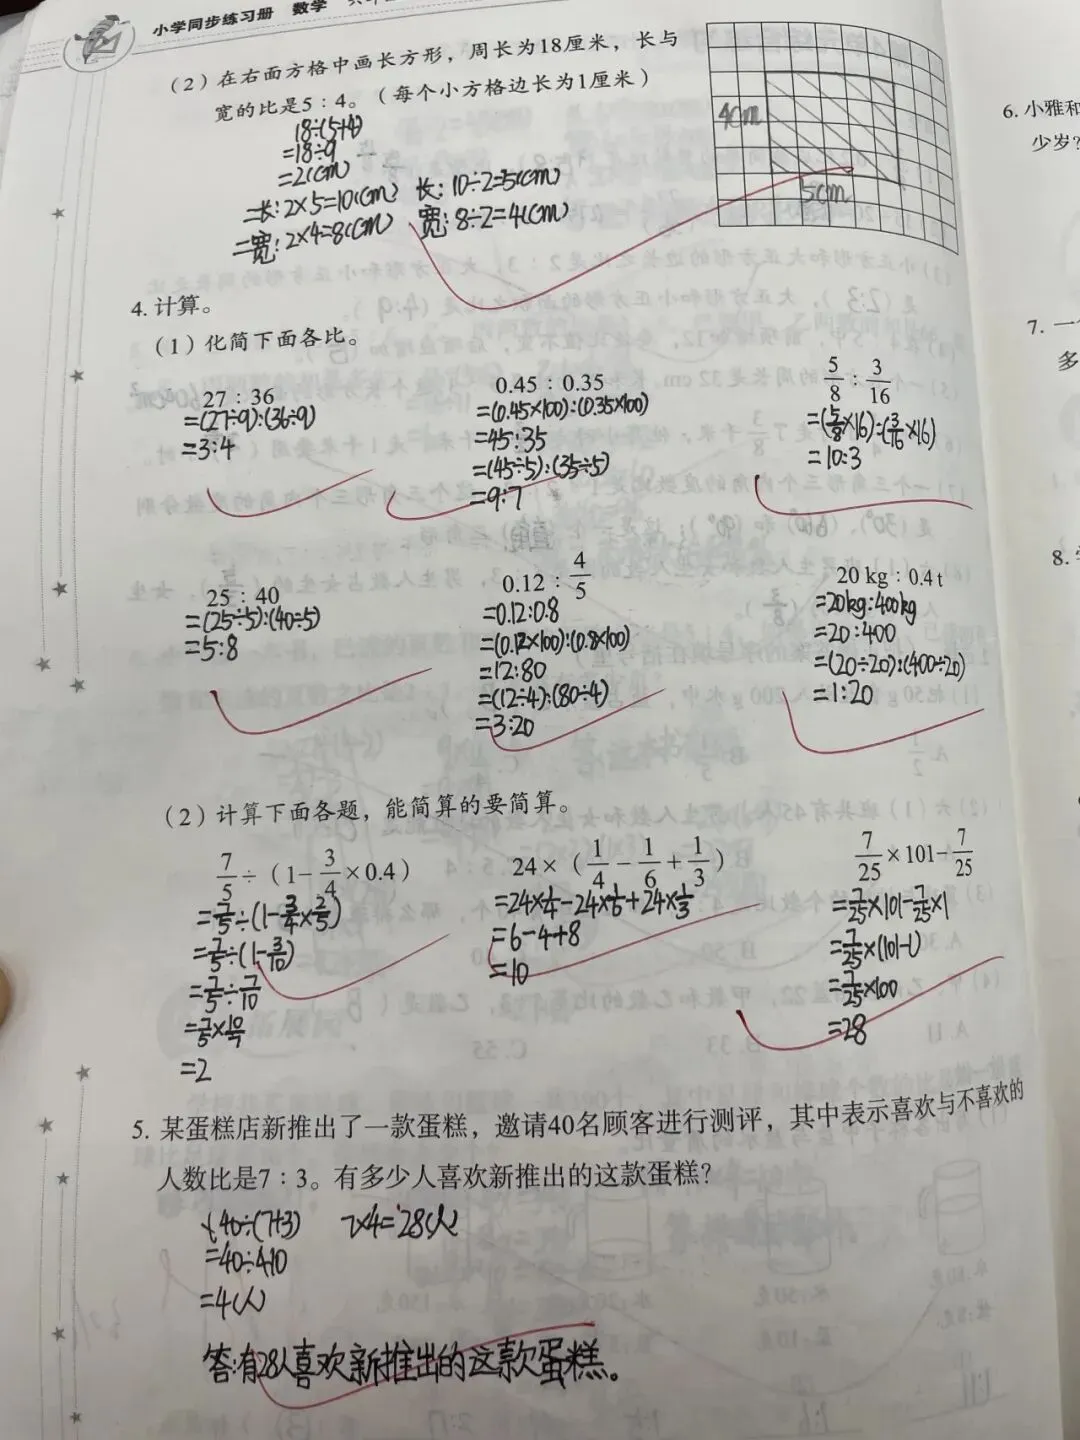 小学同步练习册 数学
(2)在右面方格中画长方形,周长为18厘米,长与
宽的比是5:4。(每个小方格边长为1厘米)
18÷(5+4)
=18÷9
=2(cm)
二长:2×5=10(cm) 长:10÷2=5(cm)
二宽:2×4=8(cm) 宽:8÷2=4(cm)
4cm
5cm
4. 计算。
(1)化简下面各比。
27:36
=(27÷9):(36÷9)
=3:4
0.45:0.35
=(0.45×100):(0.35×100)
=45:35
=(45÷5):(35÷5)
=9:7
5/8:3/16
=(5/8×16):(3/16×16)
=10:3
25:40
=(25÷5):(40÷5)
=5:8
0.12:4/5
=0.12:0.8
=(0.12×100):(0.8×100)
=12:80
=(12÷4):(80÷4)
=3:20
20 kg:0.4 t
=20kg:400kg
=20:400
=(20÷20):(400÷20)
=1:20
(2)计算下面各题,能简算的要简算。
7/5÷(1-3/4×0.4)
=7/5÷(1-3/4×2/5)
=7/5÷(1-3/10)
=7/5÷7/10
=7/5×10/7
=2
24×(1/4-1/6+1/3)
=24×1/4-24×1/6+24×1/3
=6-4+8
=10
7/25×101-7/25
=7/25×101-7/25×1
=7/25×(101-1)
=7/25×100
=28
5. 某蛋糕店新推出了一款蛋糕,邀请40名顾客进行测评,其中表示喜欢与不喜欢的
人数比是7:3。有多少人喜欢新推出的这款蛋糕?
40÷(7+3) 7×4=28(人)
=40÷10
=4(人)
答:有28人喜欢新推出的这款蛋糕。
6. 小雅和
少岁?
7. 一
多
8.